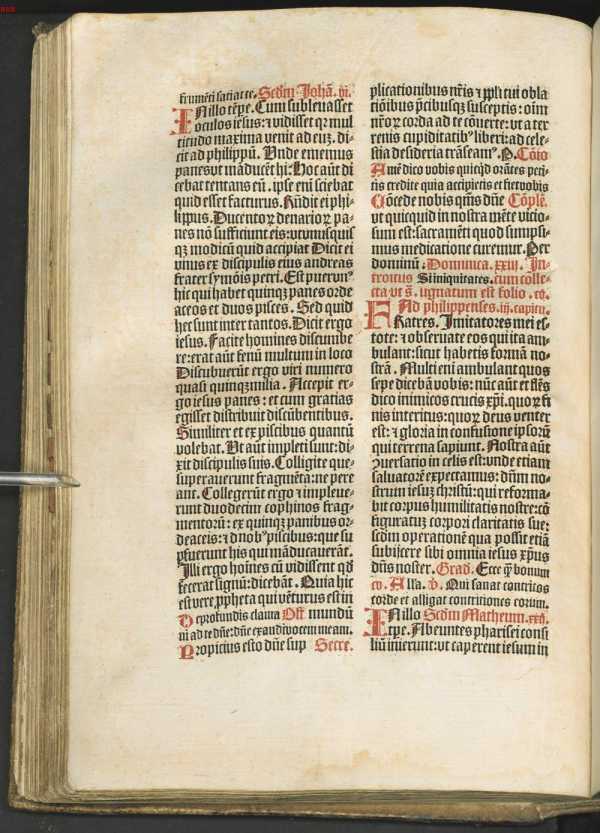 frumēti satiat te. Scdm Johā. vi.
IN illo tēpe. Cum subleuasset
oculos iesus: ⁊ vidisset qr mul
titudo maxima venit ad euz. di-
cit ad philippū. Vnde ememus
panes vt māducēt hi: Hoc aūt di
cebat tentans eū. ipse eni sciebat
quid esset facturus. Rn̄dit ei phi-
lippus. Ducentoꝝ denarioꝝ pa-
nes nō sufficiunt eis: vt vnusquis
qz modicū quid accipiat Dicit ei
vnus ex discipulis eius andreas
frater symōis petri. Est puer vnꝰ
hic qui habet quinqz panes orde
aceos et duos pisces. Sed quid
hec sunt inter tantos. Dicit ergo
iesus. Facite homines discumbe
re: erat aūt fenū multum in loco
Discubuerūt ergo viri numero
quasi quinqzmilia. Accepit er-
go iesus panes: et cum gratias
egisset distribuit discūbentibus.
Similiter et ex piscibus quantū
volebat. Vt aūt impleti sunt: di-
xit discipulis suis. Colligite que-
superauerunt fragmēta: ne pere
ant. Collegerūt ergo ⁊ impleue-
runt duodecim cophinos frag-
mentorū: ex quinqz panibus or-
deaceis: ⁊ duobꝰ piscibus: que su
ꝑfuerunt his qui māducauerāt.
Illi ergo hoīnes cū vidissent qđ
fecerat signū: dicebāt. Quia hic
est vere ꝓpheta qui vēturus est in
De profundis clama Off mundū
ui ad te dn̄e: dn̄e exaudi vocem meam.
Propicius esto dn̄e sup Secre.
plicationibus nr̄is ⁊ ppl'i tui obla
tiōibus p̄cibusqz susceptis: oīm
nr̄oꝝ corda ad te cōuerte: vt a ter
renis cupiditatibꝰ liberi: ad cele-
stia desideria trāseamꝰ. P. Cōio
Amē dico vobis quicqd orātes peti-
tis credite quia accipietis et fiet vobis
Cōcede nobis qm̄s dn̄e Cōple.
vt quicquid in nostra mēte vicio-
sum est: sacramēti quod sumpsi-
mus medicatione curemur. Per
dominū. Dominica. xxiii. In-
troitus Si iniquitates. cum colle-
cta vt s. signatum est folio. ro.
Ad philippenses. iii. capitu.
FRatres. Imitatores mei es-
tote: ⁊ obseruate eos qui ita am-
bulant: sicut habetis formā no-
strā. Multi eni ambulant quos
sepe dicebā vobis: nūc aūt et flēs
dico inimicos crucis xp̄i. quoꝝ fi
nis interitus: quoꝝ deus venter
est: ⁊ gloria in confusione ipsorū
qui terrena sapiunt. Nostra aūt
ꝯuersatio in celis est: vnde etiam
saluatorē expectamus: dn̄m no-
strum iesuz christū: qui reforma-
bit corpus humilitatis nostre: cō
figuratuz corpori claritatis sue:
scdm operationē qua possit etiā
subijcere sibi omnia iesus xp̄us
dn̄s noster. Grad. Ecce q̄ bonum
Alla. v. Qui sanat contritos
corde et alligat contritiones eorum.
IN illo Scdm Matheum. xxii.
tp̄e. Abeuntes pharisei consi
liū inierunt: vt caperent iesum in